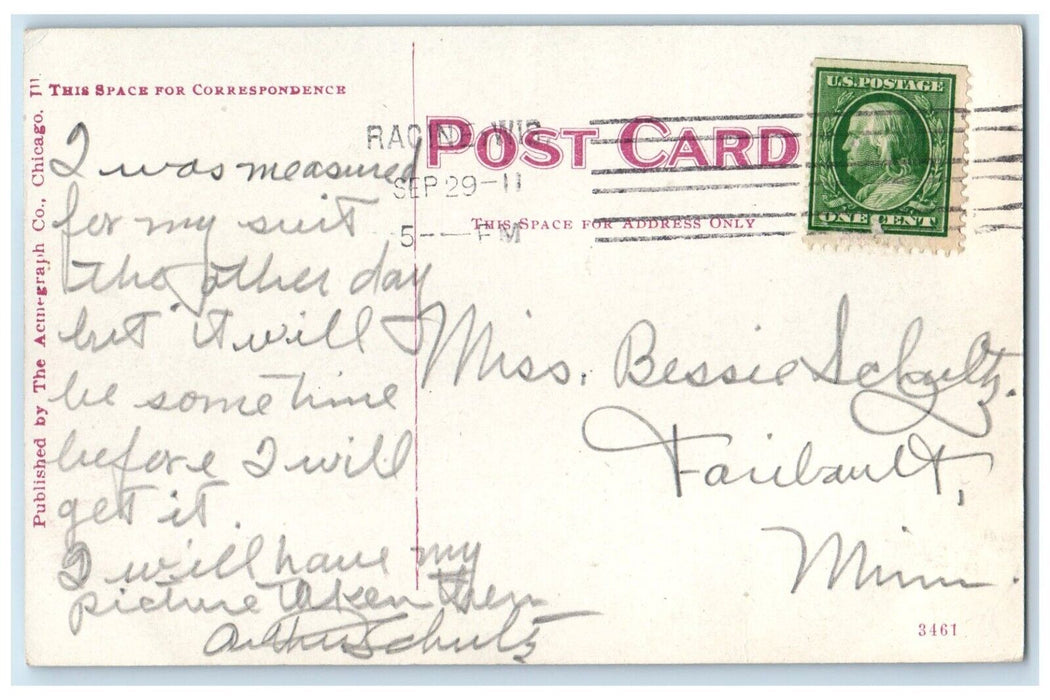 THIS SPACE FOR CORRESPONDENCE
Published by The Acmegraph Co., Chicago, Ill.
I was measured
for my suit
tho other day
but it will
be sometime
before I will
get it.
I will have my
picture taken then
Arthur Schultz
POST CARD
RACINE WIS.
SEP 29-11
5 — PM
THIS SPACE FOR ADDRESS ONLY
U.S. POSTAGE
ONE CENT
Miss. Bessie Schultz.
Faribault,
Minn.
3461